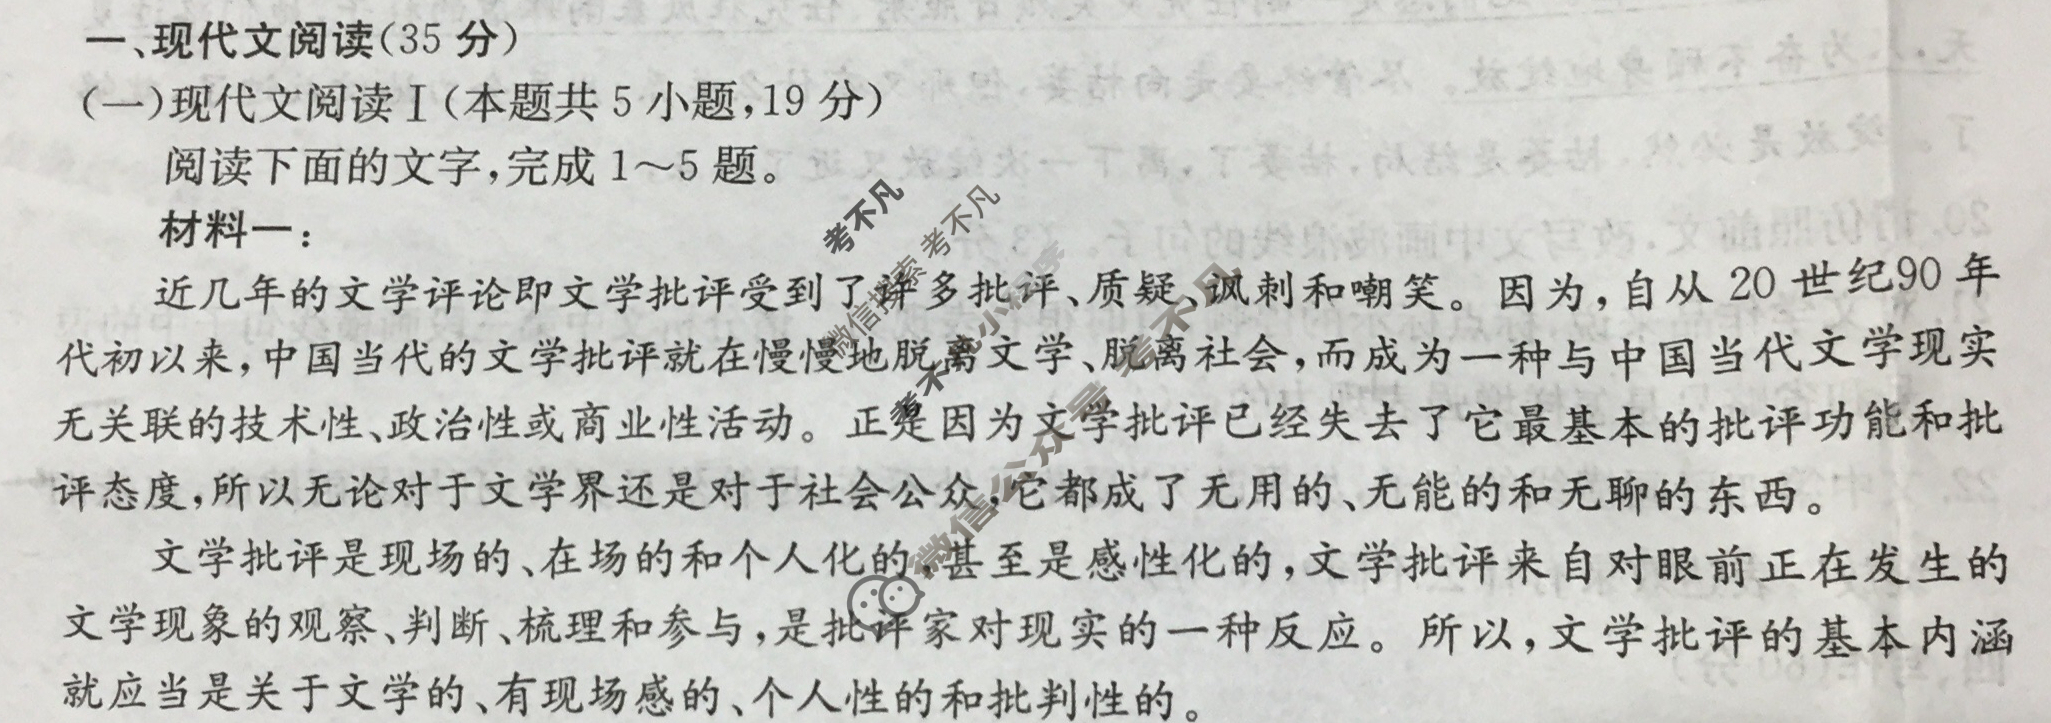 一、现代文阅读(35 分)
(一)现代文阅读 I (本题共 5 小题,19 分)
阅读下面的文字,完成 1～5 题。
材料一:
近几年的文学评论即文学批评受到了许多批评、质疑、讽刺和嘲笑。因为,自从 20 世纪90 年
代初以来,中国当代的文学批评就在慢慢地脱离文学、脱离社会,而成为一种与中国当代文学现实
无关联的技术性、政治性或商业性活动。正是因为文学批评已经失去了它最基本的批评功能和批
评态度,所以无论对于文学界还是对于社会公众,它都成了无用的、无能的和无聊的东西。
文学批评是现场的、在场的和个人化的,甚至是感性化的,文学批评来自对眼前正在发生的
文学现象的观察、判断、梳理和参与,是批评家对现实的一种反应。所以,文学批评的基本内涵
就应当是关于文学的、有现场感的、个人性的和批判性的。
考不凡
微信搜索 考不凡
考不凡 小程序
微信公众号 考不凡